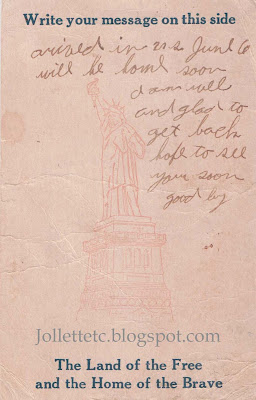 Write your message on this side
arived in U.S June 6
will be home soon
I am well
and glad to
get back
hope to see
you soon
good by
Jollettetc.blogspot.com
The Land of the Free
and the Home of the Brave